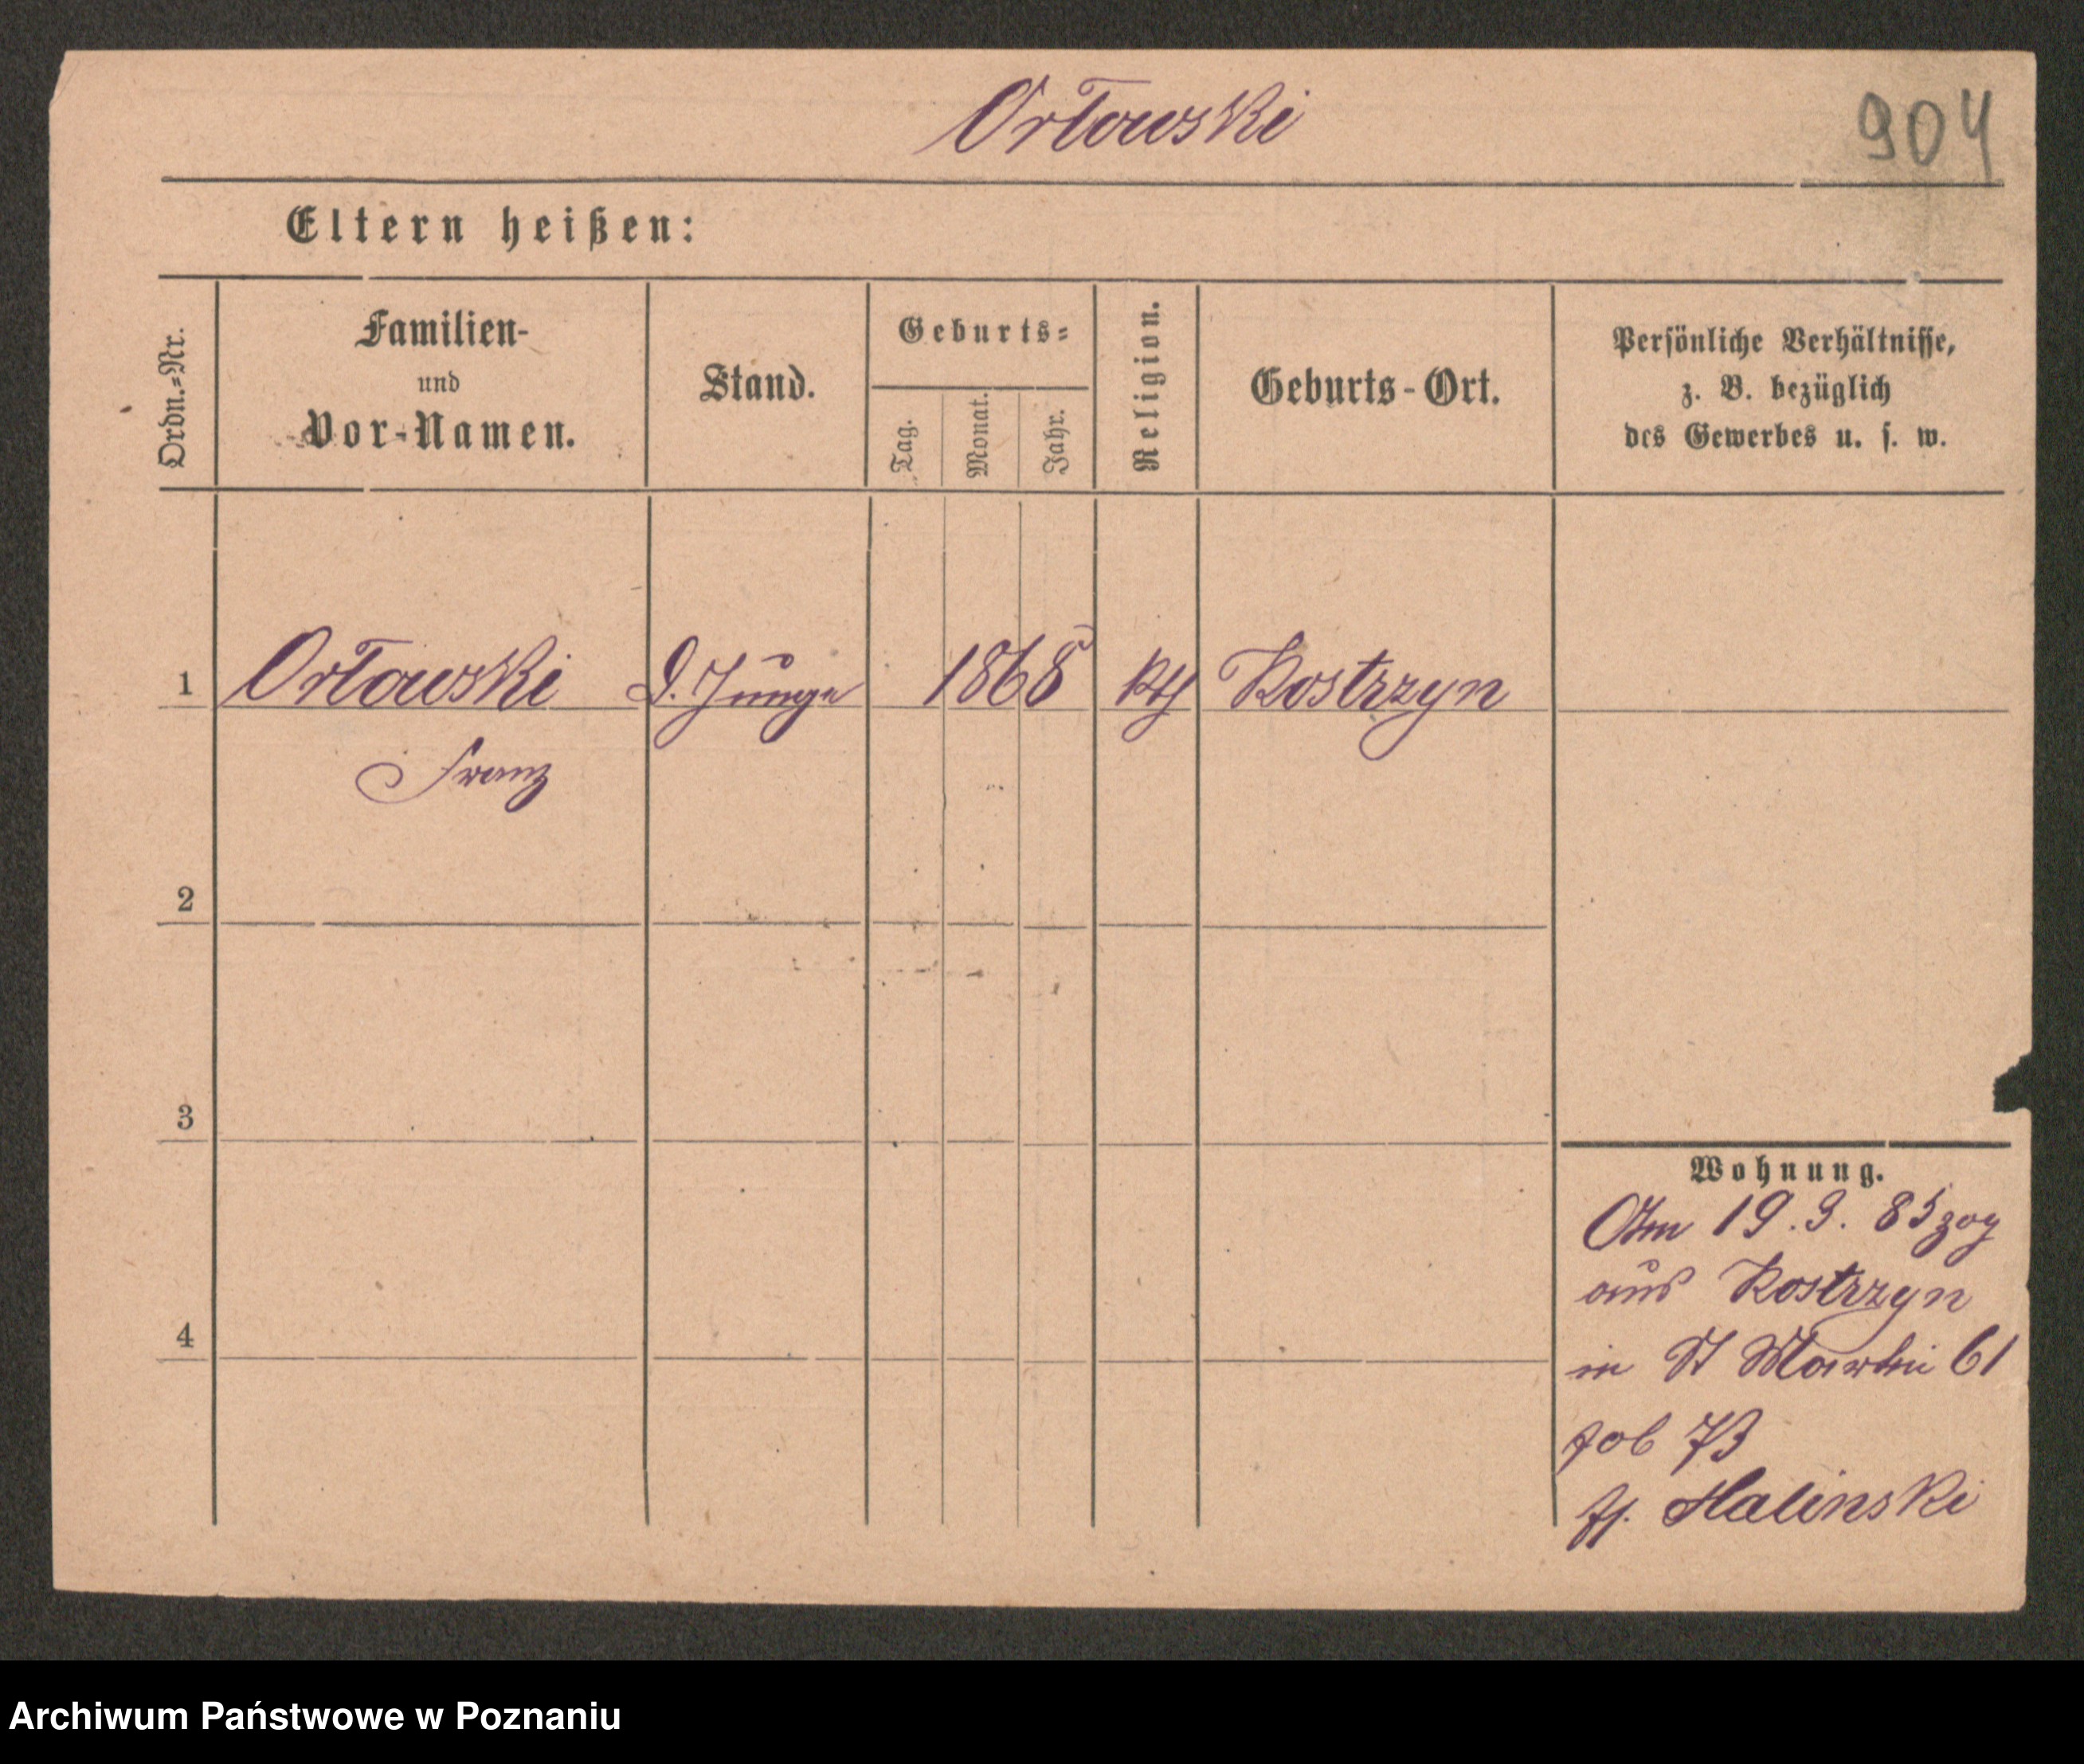 Orłowski
904
Eltern heißen:
Ordn.=Nr.
Familien-
und
Vor-Namen.
Stand.
Geburts=
Tag.
Monat.
Jahr.
Religion.
Geburts-Ort.
Persönliche Verhältnisse,
z. B. bezüglich
des Gewerbes u. s. w.
1 Orłowski Junge 1868 kth Kostrzyn
Franz
2
3
4
Wohnung.
Am 19.3.85 zog
aus Kostrzyn
in St Martin 61
73
Halinski
Archiwum Państwowe w Poznaniu